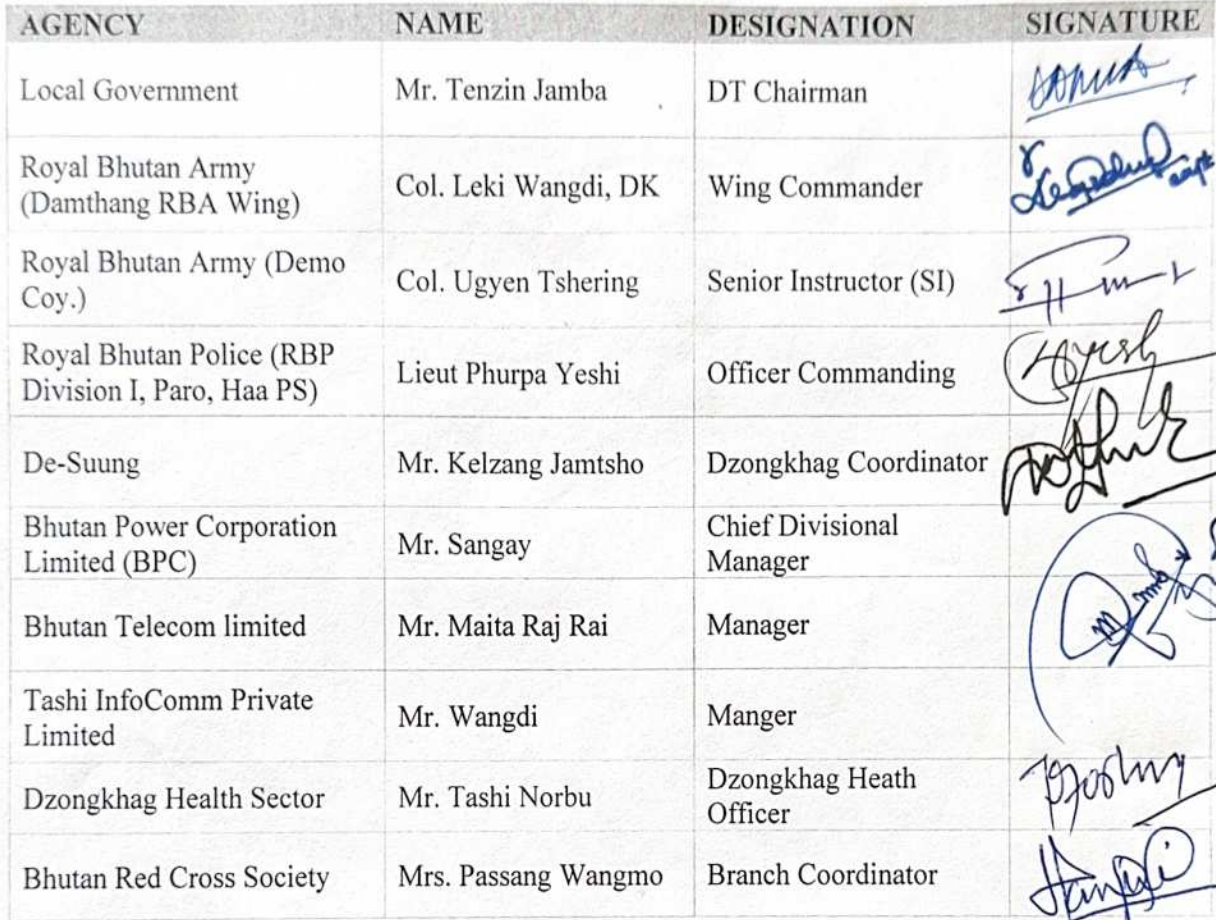 AGENCY NAME DESIGNATION SIGNATURE
Local Government Mr. Tenzin Jamba DT Chairman
Royal Bhutan Army
(Damthang RBA Wing) Col. Leki Wangdi, DK Wing Commander
Royal Bhutan Army (Demo
Coy.) Col. Ugyen Tshering Senior Instructor (SI)
Royal Bhutan Police (RBP
Division I, Paro, Haa PS) Lieut Phurpa Yeshi Officer Commanding
De-Suung Mr. Kelzang Jamtsho Dzongkhag Coordinator
Bhutan Power Corporation
Limited (BPC) Mr. Sangay Chief Divisional
Manager
Bhutan Telecom limited Mr. Maita Raj Rai Manager
Tashi InfoComm Private
Limited Mr. Wangdi Manger
Dzongkhag Health Sector Mr. Tashi Norbu Dzongkhag Heath
Officer
Bhutan Red Cross Society Mrs. Passang Wangmo Branch Coordinator